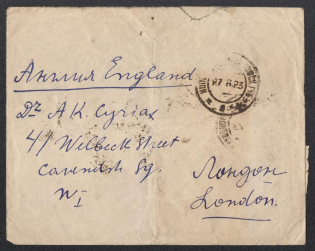 Англия England
Dr A K. Cyriax
41 Welbeck Street
Cavendish Sq.
W1
Лондон
London.
27.11.23